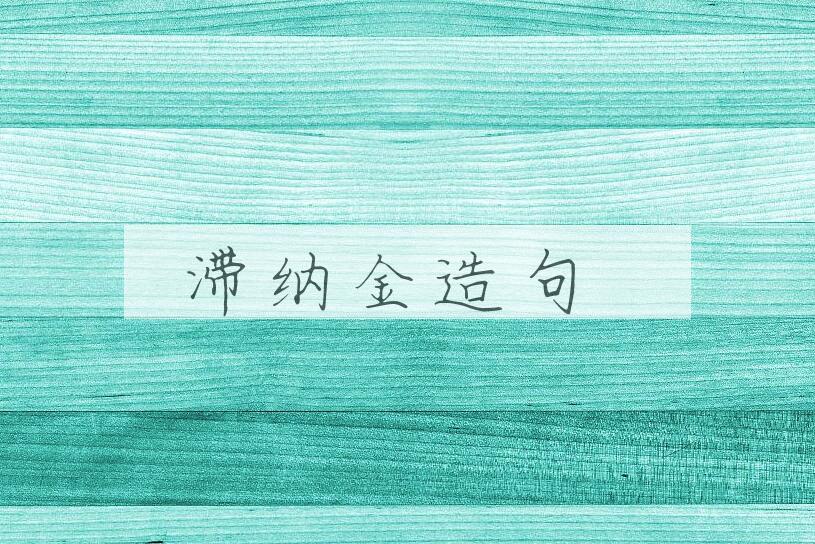 滞纳金造句